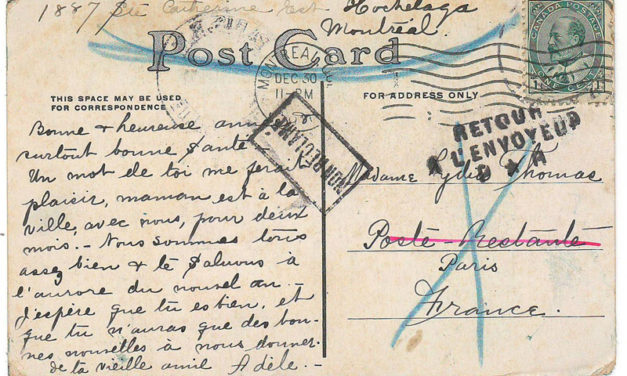 1887 Ste Catherine Est Hochelaga
Montréal
Post Card
THIS SPACE MAY BE USED
FOR CORRESPONDENCE
FOR ADDRESS ONLY
MONTREAL
DEC 30
11-PM
CANADA POSTAGE
Bonne & heureuse
surtout bonne Santé
Un mot de toi me fera
plaisir, maman est à la
ville, avec nous, pour deux
mois. - Nous sommes tous
assez bien & te Saluons à
l'aurore du nouvel an. -
J'espère que tu es bien, et
que tu n'auras que des bon-
nes nouvelles à nous donner.
de ta vieille amie Adèle. -
NON RÉCLAMÉ
RETOUR
A L'ENVOYEUR
Madame Lydia Thomas
Poste-Restante
Paris
France.